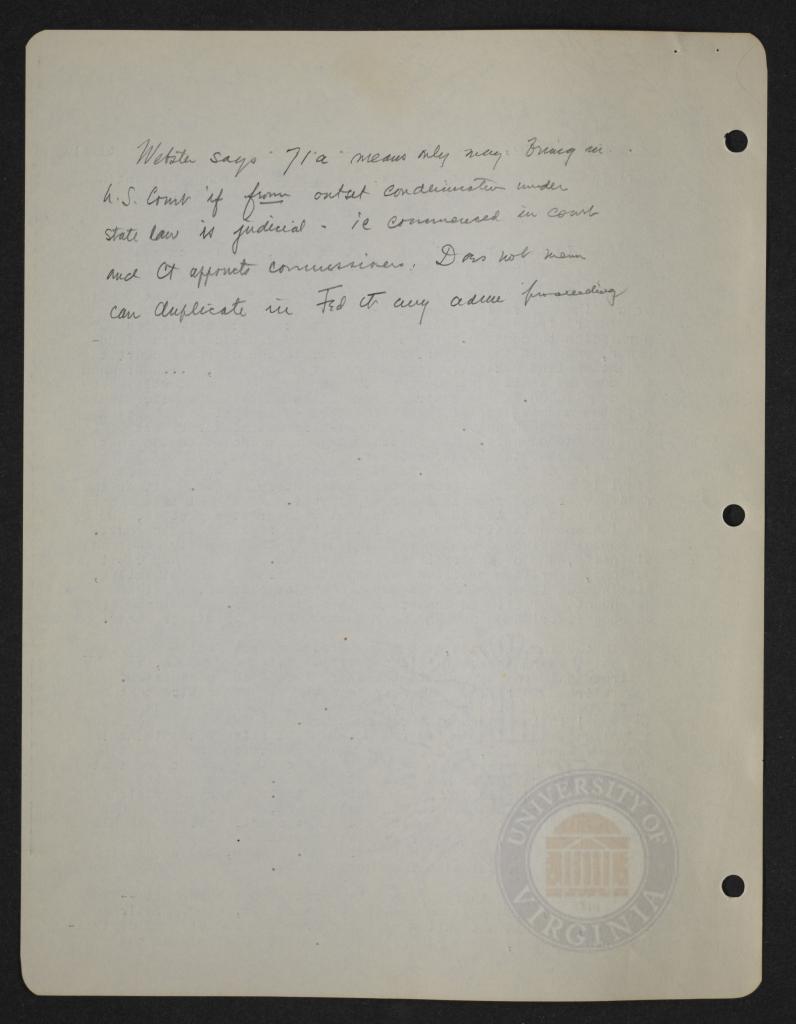 Webster says "71a" means only may bring in
U.S. Court if from outset condemnation under
state law is judicial - ie commenced in court
and Ct appoints commissioners. Does not mean
can duplicate in Fed Ct any adm proceeding
UNIVERSITY OF
VIRGINIA